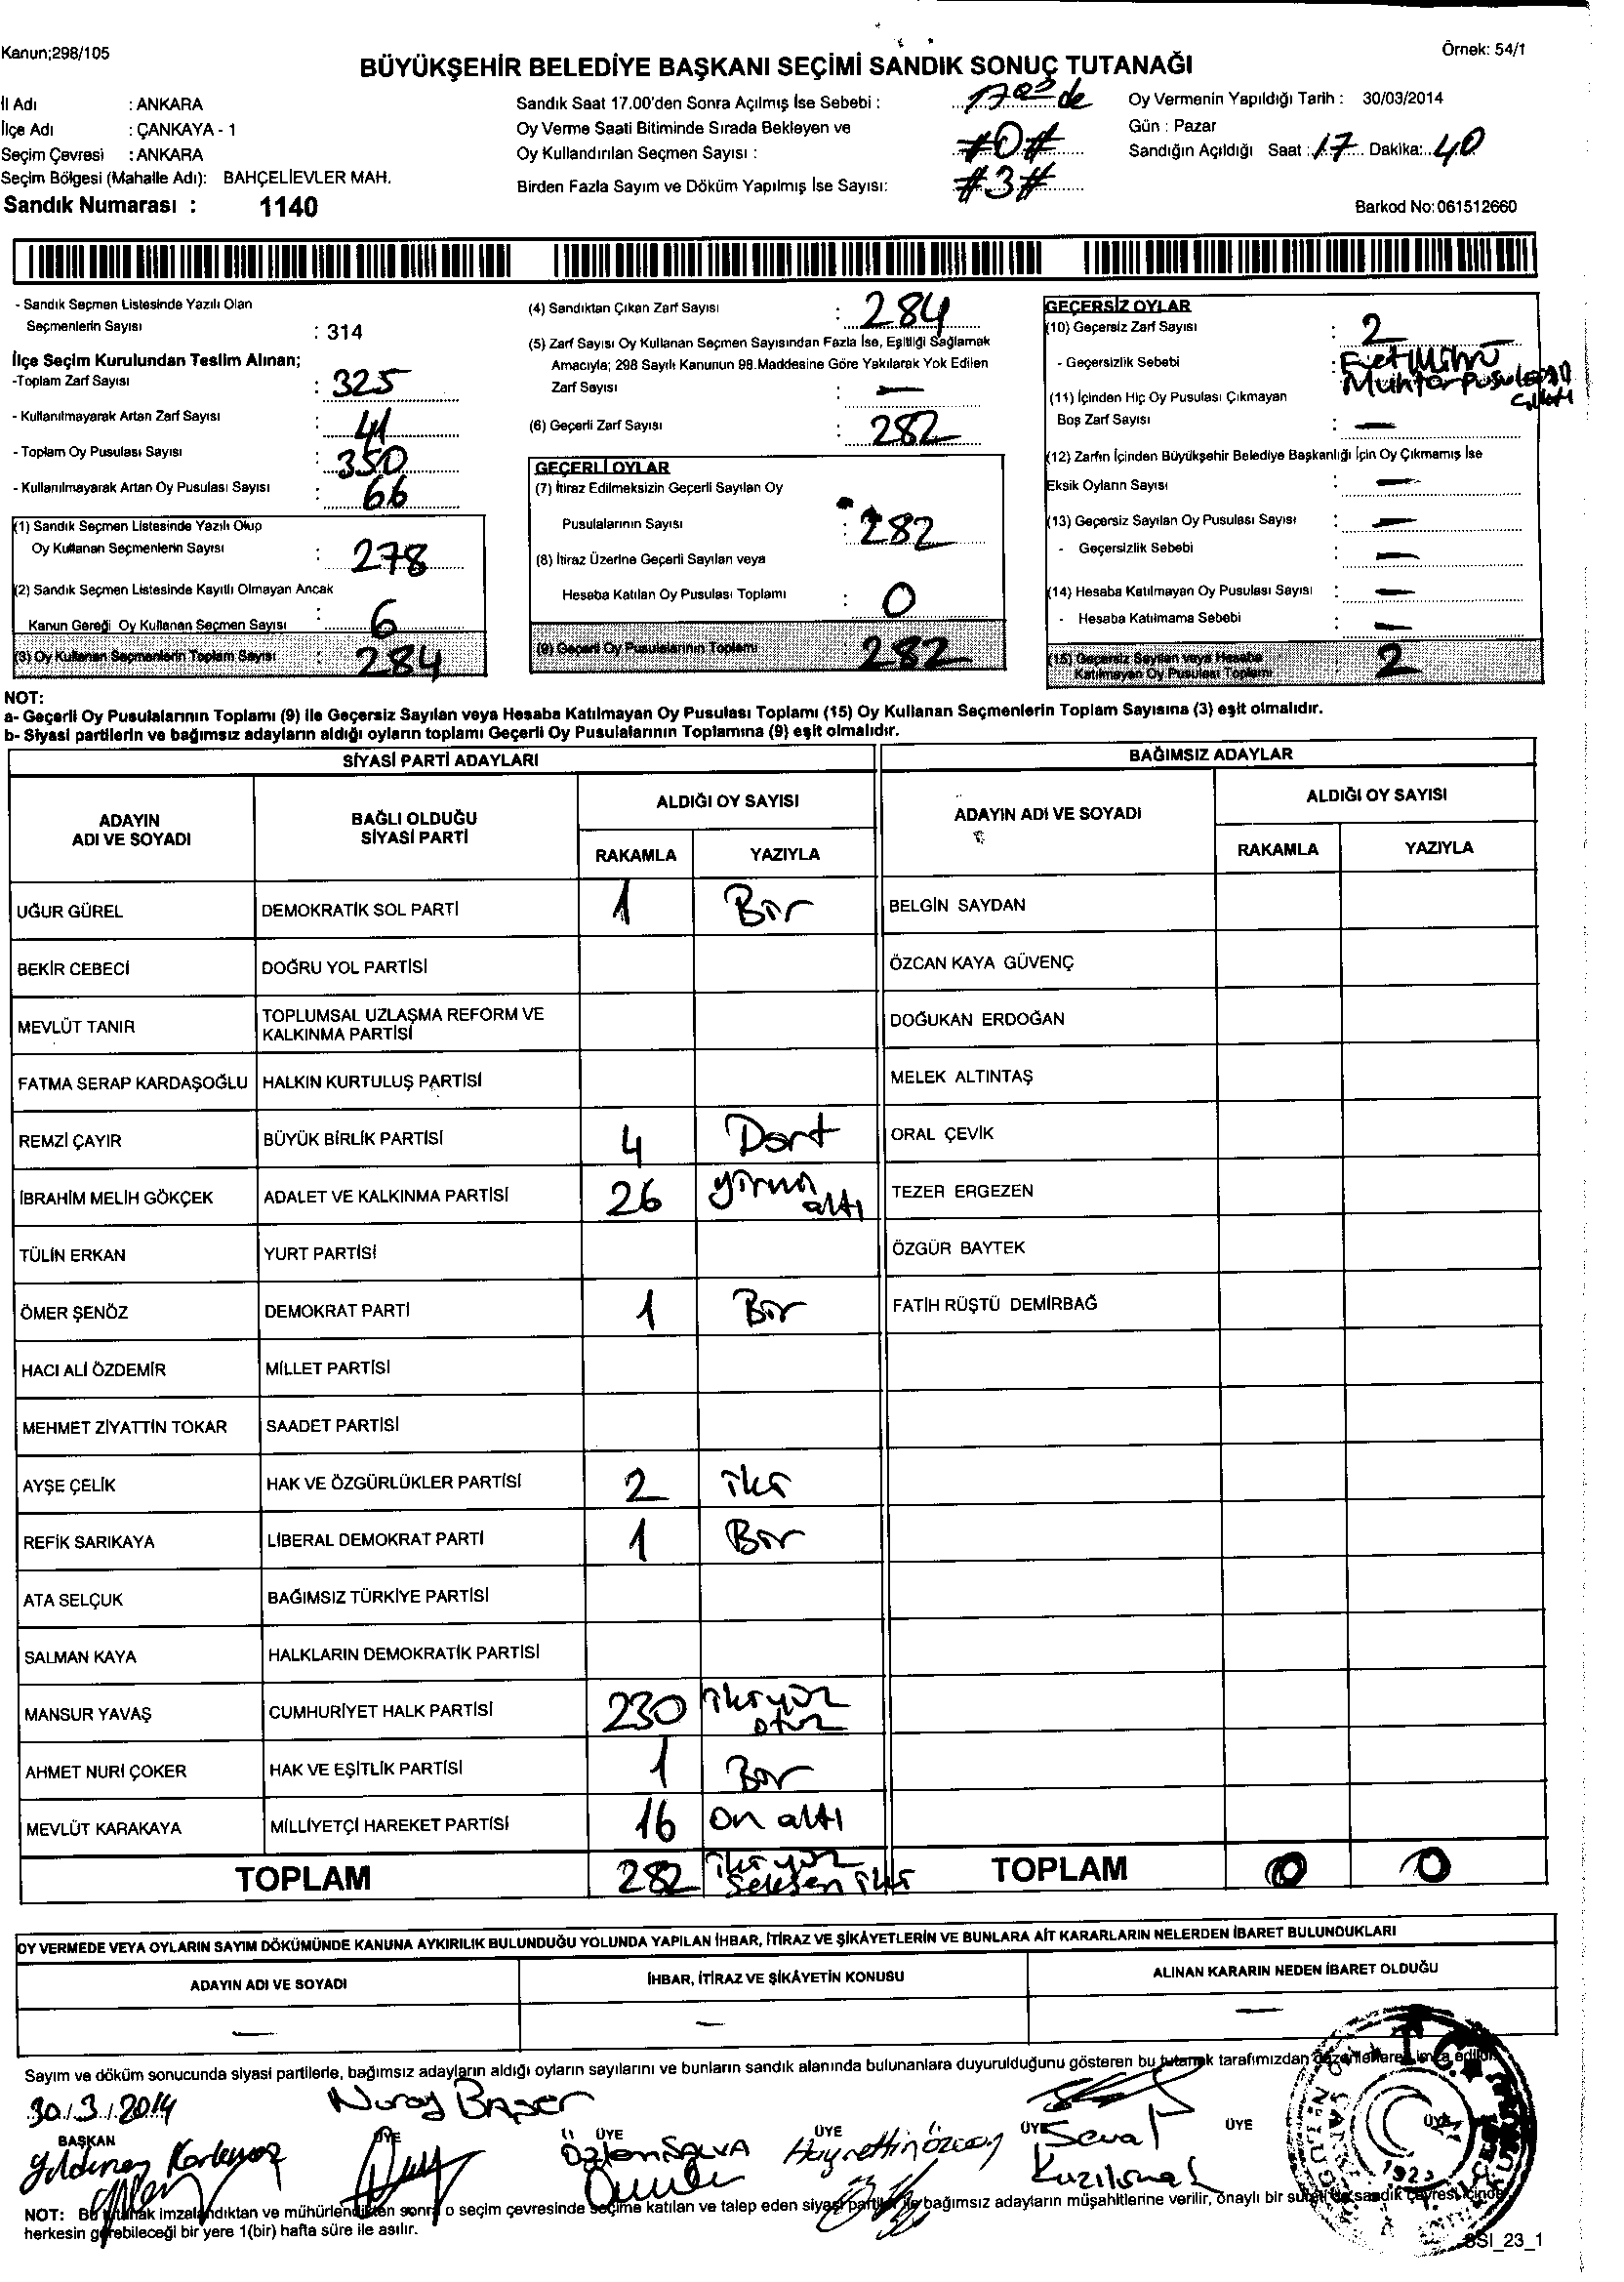 Kanun;298/105
Örnek: 54/1
BÜYÜKŞEHİR BELEDİYE BAŞKANI SEÇİMİ SANDIK SONUÇ TUTANAĞI
İl Adı : ANKARA
İlçe Adı : ÇANKAYA - 1
Seçim Çevresi : ANKARA
Seçim Bölgesi (Mahalle Adı): BAHÇELİEVLER MAH.
Sandık Numarası : 1140
Sandık Saat 17.00'den Sonra Açılmış İse Sebebi : 17 00 de
Oy Verme Saati Bitiminde Sırada Bekleyen ve
Oy Kullandırılan Seçmen Sayısı : #0#
Birden Fazla Sayım ve Döküm Yapılmış İse Sayısı: #3#
Oy Vermenin Yapıldığı Tarih : 30/03/2014
Gün : Pazar
Sandığın Açıldığı Saat : 17 Dakika: 40
Barkod No: 061512660
- Sandık Seçmen Listesinde Yazılı Olan
Seçmenlerin Sayısı : 314
İlçe Seçim Kurulundan Teslim Alınan;
-Toplam Zarf Sayısı : 325
- Kullanılmayarak Artan Zarf Sayısı : 41
- Toplam Oy Pusulası Sayısı : 350
- Kullanılmayarak Artan Oy Pusulası Sayısı : 66
(1) Sandık Seçmen Listesinde Yazılı Olup
Oy Kullanan Seçmenlerin Sayısı : 278
(2) Sandık Seçmen Listesinde Kayıtlı Olmayan Ancak
Kanun Gereği Oy Kullanan Seçmen Sayısı : 6
(3) Oy Kullanan Seçmenlerin Toplam Sayısı : 284
(4) Sandıktan Çıkan Zarf Sayısı : 284
(5) Zarf Sayısı Oy Kullanan Seçmen Sayısından Fazla İse, Eşitliği Sağlamak
Amacıyla; 298 Sayılı Kanunun 98.Maddesine Göre Yakılarak Yok Edilen
Zarf Sayısı : —
(6) Geçerli Zarf Sayısı : 282
GEÇERLİ OYLAR
(7) İtiraz Edilmeksizin Geçerli Sayılan Oy
Pusulalarının Sayısı : 282
(8) İtiraz Üzerine Geçerli Sayılan veya
Hesaba Katılan Oy Pusulası Toplamı : 0
(9) Geçerli Oy Pusulalarının Toplamı 282
GEÇERSİZ OYLAR
(10) Geçersiz Zarf Sayısı : 2
- Geçersizlik Sebebi : Evet Mührü
Muhtar Pusulasın
(11) İçinden Hiç Oy Pusulası Çıkmayan
Boş Zarf Sayısı : —
(12) Zarfın İçinden Büyükşehir Belediye Başkanlığı İçin Oy Çıkmamış İse
Eksik Oyların Sayısı : —
(13) Geçersiz Sayılan Oy Pusulası Sayısı : —
- Geçersizlik Sebebi : —
(14) Hesaba Katılmayan Oy Pusulası Sayısı : —
- Hesaba Katılmama Sebebi : —
(15) Geçersiz Sayılan veya Hesaba
Katılmayan Oy Pusulası Toplamı 2
NOT:
a- Geçerli Oy Pusulalarının Toplamı (9) ile Geçersiz Sayılan veya Hesaba Katılmayan Oy Pusulası Toplamı (15) Oy Kullanan Seçmenlerin Toplam Sayısına (3) eşit olmalıdır.
b- Siyasi partilerin ve bağımsız adayların aldığı oyların toplamı Geçerli Oy Pusulalarının Toplamına (9) eşit olmalıdır.
SİYASİ PARTİ ADAYLARI
ADAYIN
ADI VE SOYADI
BAĞLI OLDUĞU
SİYASİ PARTİ
ALDIĞI OY SAYISI
RAKAMLA YAZIYLA
UĞUR GÜREL DEMOKRATİK SOL PARTİ 1 Bir
BEKİR CEBECİ DOĞRU YOL PARTİSİ
MEVLÜT TANIR TOPLUMSAL UZLAŞMA REFORM VE
KALKINMA PARTİSİ
FATMA SERAP KARDAŞOĞLU HALKIN KURTULUŞ PARTİSİ
REMZİ ÇAYIR BÜYÜK BİRLİK PARTİSİ 4 Dört
İBRAHİM MELİH GÖKÇEK ADALET VE KALKINMA PARTİSİ 26 yirmi
altı
TÜLİN ERKAN YURT PARTİSİ
ÖMER ŞENÖZ DEMOKRAT PARTİ 1 Bir
HACI ALİ ÖZDEMİR MİLLET PARTİSİ
MEHMET ZİYATTİN TOKAR SAADET PARTİSİ
AYŞE ÇELİK HAK VE ÖZGÜRLÜKLER PARTİSİ 2 iki
REFİK SARIKAYA LİBERAL DEMOKRAT PARTİ 1 Bir
ATA SELÇUK BAĞIMSIZ TÜRKİYE PARTİSİ
SALMAN KAYA HALKLARIN DEMOKRATİK PARTİSİ
MANSUR YAVAŞ CUMHURİYET HALK PARTİSİ 230 ikiyüz
otuz
AHMET NURİ ÇOKER HAK VE EŞİTLİK PARTİSİ 1 Bir
MEVLÜT KARAKAYA MİLLİYETÇİ HAREKET PARTİSİ 16 on altı
TOPLAM 282 ikiyüz
seksen iki
BAĞIMSIZ ADAYLAR
ADAYIN ADI VE SOYADI
ALDIĞI OY SAYISI
RAKAMLA YAZIYLA
BELGİN SAYDAN
ÖZCAN KAYA GÜVENÇ
DOĞUKAN ERDOĞAN
MELEK ALTINTAŞ
ORAL ÇEVİK
TEZER ERGEZEN
ÖZGÜR BAYTEK
FATİH RÜŞTÜ DEMİRBAĞ
TOPLAM 0 0
OY VERMEDE VEYA OYLARIN SAYIM DÖKÜMÜNDE KANUNA AYKIRILIK BULUNDUĞU YOLUNDA YAPILAN İHBAR, İTİRAZ VE ŞİKÂYETLERİN VE BUNLARA AİT KARARLARIN NELERDEN İBARET BULUNDUKLARI
ADAYIN ADI VE SOYADI İHBAR, İTİRAZ VE ŞİKÂYETİN KONUSU ALINAN KARARIN NEDEN İBARET OLDUĞU
— — —
Sayım ve döküm sonucunda siyasi partilerle, bağımsız adayların aldığı oyların sayılarını ve bunların sandık alanında bulunanlara duyurulduğunu gösteren bu tutanak tarafımızdan düzenlenerek imza edildi.
30/3/2014 Nuray Başer
BAŞKAN ÜYE ÜYE ÜYE ÜYE ÜYE ÜYE
Özlem Hayrettin Özcan
NOT: Bu tutanak imzalandıktan ve mühürlendikten sonra o seçim çevresinde seçime katılan ve talep eden siyasi partiler ile bağımsız adayların müşahitlerine verilir, onaylı bir sureti de sandık çevresi içinde
herkesin görebileceği bir yere 1(bir) hafta süre ile asılır.
SSI_23_1